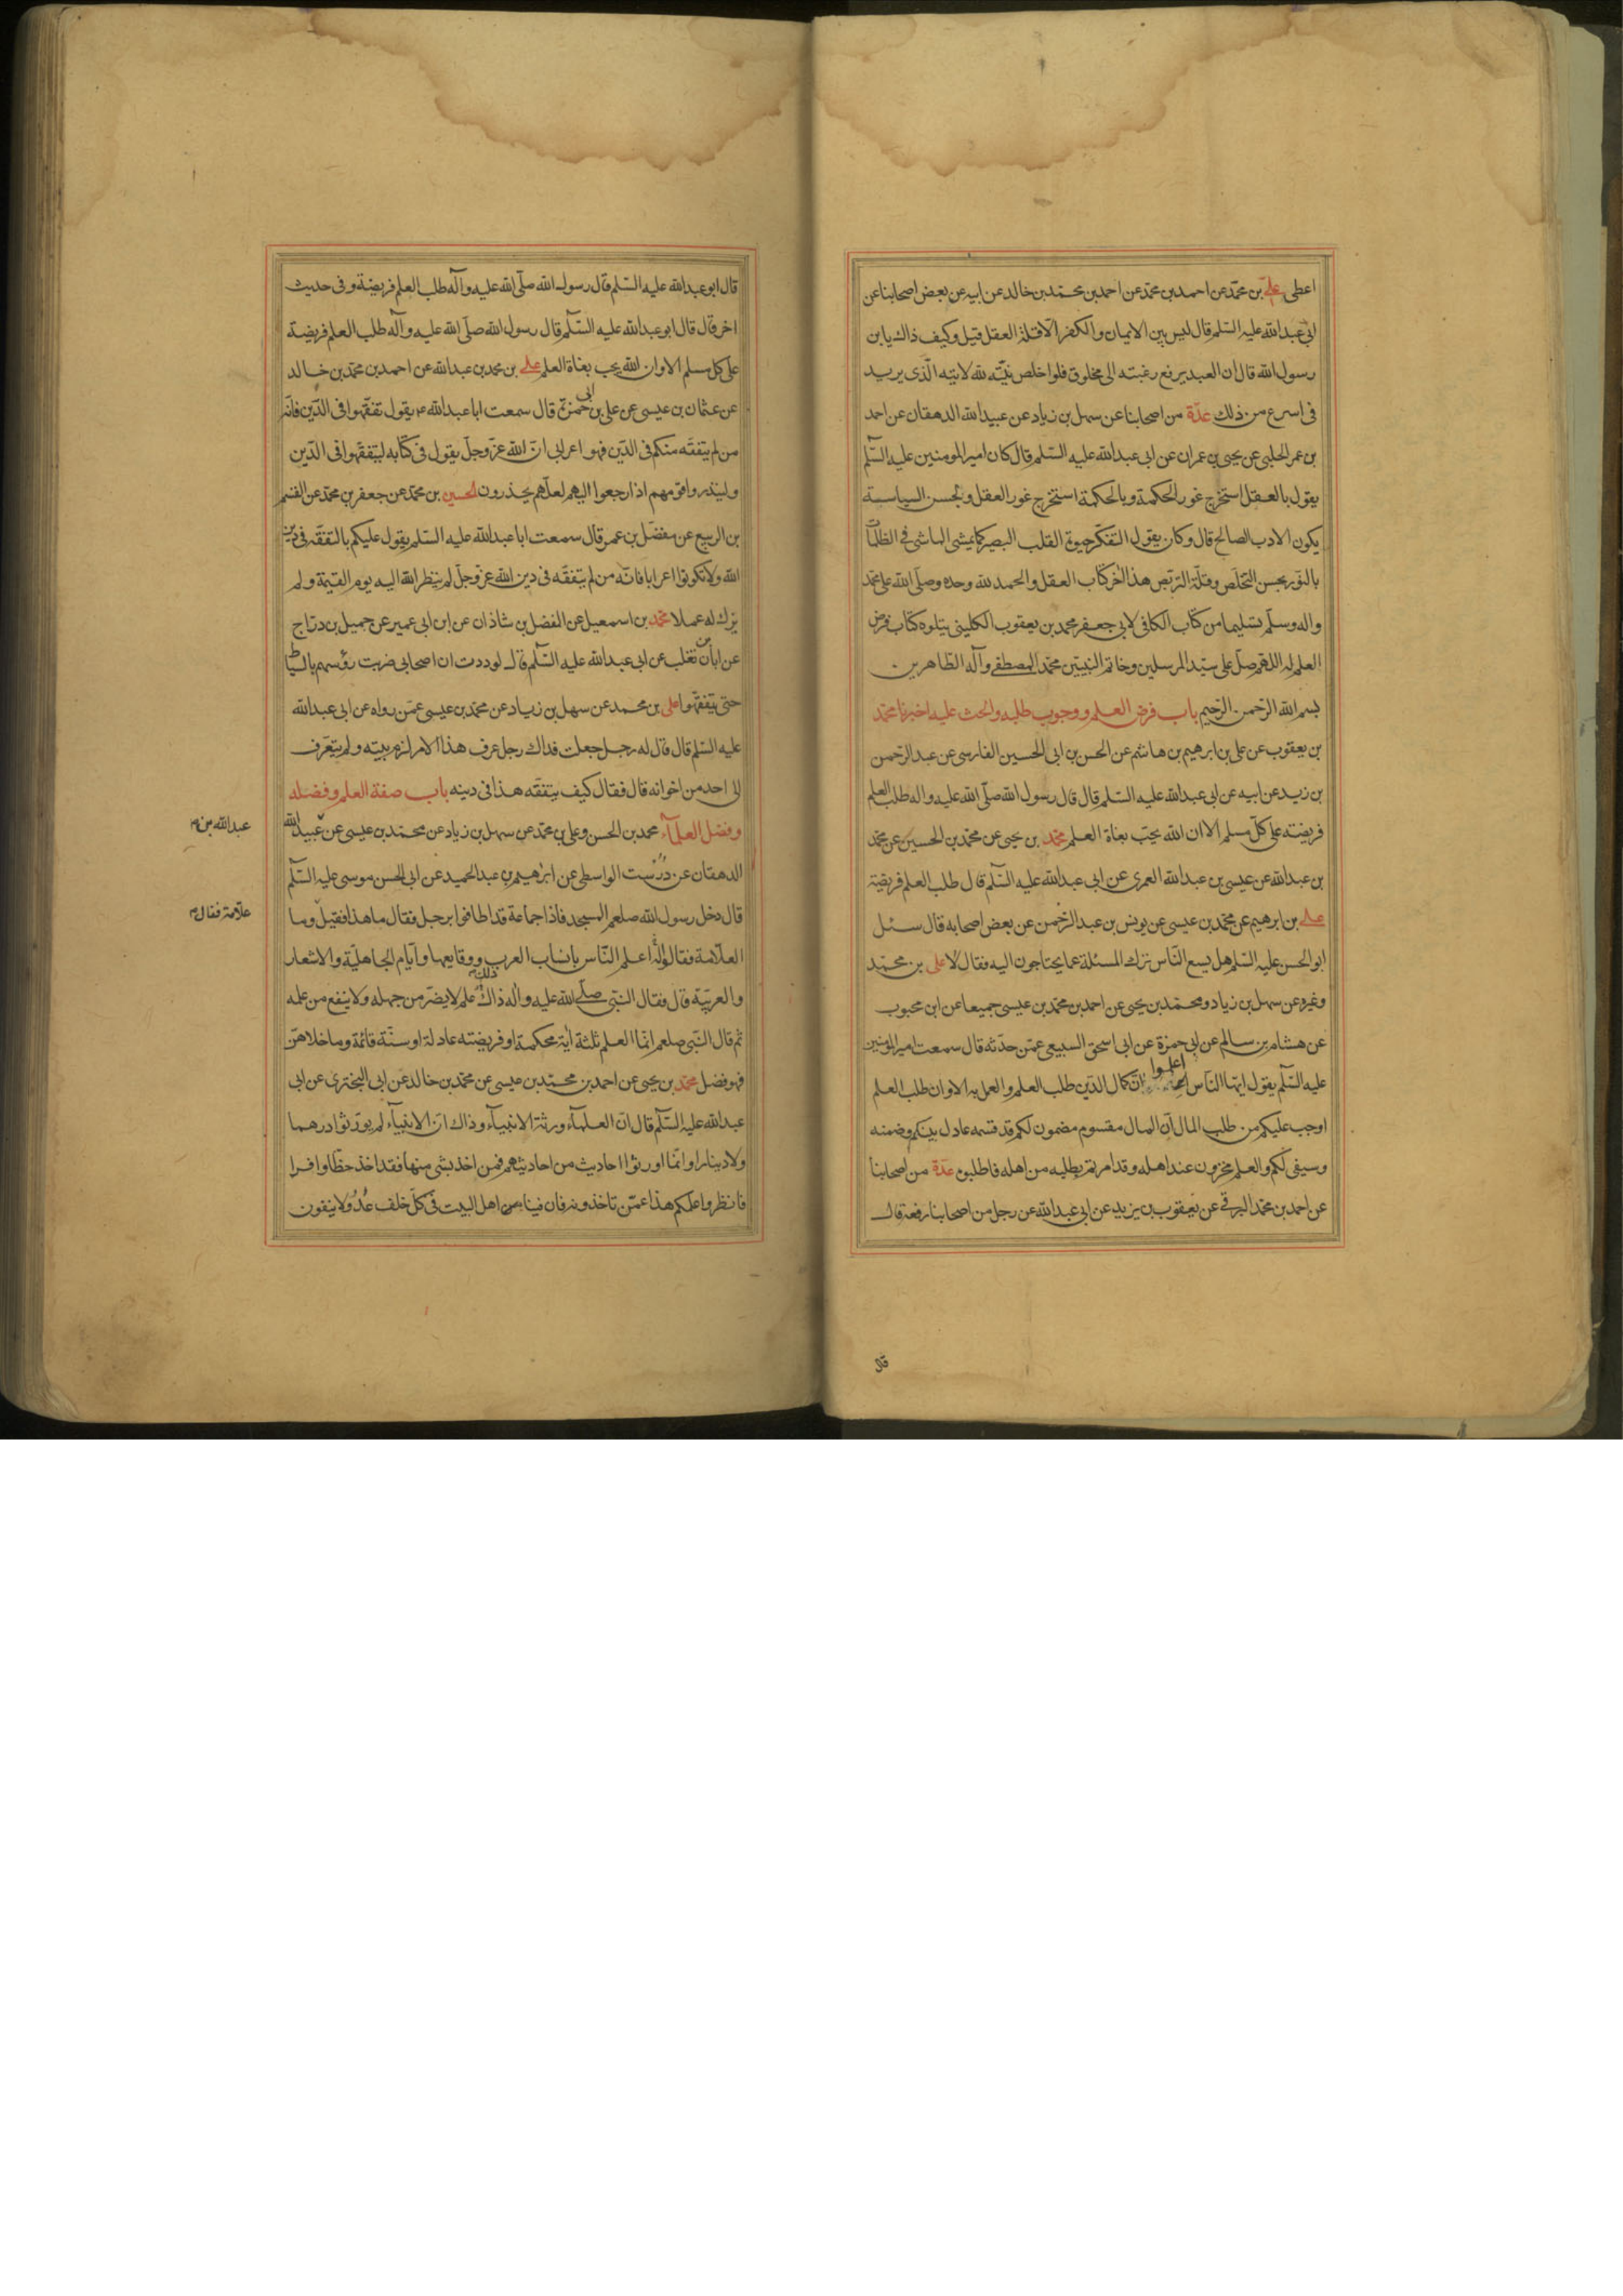 اعطى على بن محمد عن احمد بن محمد عن احمد بن محمد بن خالد عن ابيه عن بعض اصحابنا عن
ابى عبدالله عليه السلم قال ليس بين الايمان والكفر الا قلة العقل قيل وكيف ذاك يابن
رسول الله قال ان العبد يرفع رغبته الى مخلوق فلو اخلص نيته لله لاتيه الذى يريد
فى اسرع من ذلك عدة من اصحابنا عن سهل بن زياد عن عبيدالله الدهقان عن احمد
بن عمر الحلبى عن يحيى بن عمران عن ابى عبدالله عليه السلم قال كان امير المومنين عليه السلم
يقول بالعقل استخرج غور الحكمة وبالحكمة استخرج غور العقل وبحسن السياسة
يكون الادب الصالح قال وكان يقول التفكر حيوة القلب البصير كما يمشى الماشى فى الظلمات
بالنور بحسن التخلص وقلة التربص هذا اخر كتاب العقل والحمد لله وحده وصلى الله على محمد
واله وسلم تسليما من كتاب الكافى لابى جعفر محمد بن يعقوب الكلينى يتلوه كتاب فرض
العلم له اللهم صل على سيد المرسلين وخاتم النبيين محمد المصطفى وآله الطاهرين
بسم الله الرحمن الرحيم باب فرض العلم ووجوب طلبه والحث عليه اخبرنا محمد
بن يعقوب عن على بن ابرهيم بن هاشم عن الحسن بن ابى الحسين الفارسى عن عبد الرحمن
بن زيد عن ابيه عن ابى عبدالله عليه السلم قال قال رسول الله صلى الله عليه واله طلب العلم
فريضته على كل مسلم الا ان الله يحب بغاة العلم محمد بن يحيى عن محمد بن الحسين عن محمد
بن عبدالله عن عيسى بن عبدالله العمرى عن ابى عبدالله عليه السلم قال طلب العلم فريضة
على بن ابرهيم عن محمد بن عيسى عن يونس بن عبد الرحمن عن بعض اصحابه قال سئل
ابو الحسن عليه السلم هل يسع الناس ترك المسئلة عما يحتاجون اليه فقال لا على بن محمد
وغيره عن سهل بن زياد ومحمد بن يحيى عن احمد بن محمد بن عيسى جميعا عن ابن محبوب
عن هشام بن سالم عن ابى حمزة عن ابى اسحق السبيعى عمن حدثه قال سمعت امير المومنين
عليه السلم يقول ايها الناس اعلموا ان كمال الدين طلب العلم والعمل به الا وان طلب العلم
اوجب عليكم من طلب المال ان المال مقسوم مضمون لكم قد قسمه عادل بينكم وضمنه
وسيفى لكم والعلم مخزون عند اهله وقد امرتم بطلبه من اهله فاطلبوه عدة من اصحابنا
عن احمد بن محمد البرقى عن يعقوب بن يزيد عن ابى عبدالله عن رجل من اصحابنا رفعه قال
قال
قال ابو عبدالله عليه السلم قال رسول الله صلى الله عليه وآله طلب العلم فريضة وفى حديث
اخر قال قال ابو عبدالله عليه السلم قال رسول الله صلى الله عليه وآله طلب العلم فريضة
على كل مسلم الا وان الله يحب بغاة العلم على بن محمد بن عبدالله عن احمد بن محمد بن خالد
عن عثمان بن عيسى عن على بن ابى حمزة قال سمعت ابا عبدالله ع يقول تفقهوا فى الدين فانه
من لم يتفقه منكم فى الدين فهو اعرابى ان الله عز وجل يقول فى كتابه ليتفقهوا فى الدين
ولينذروا قومهم اذا رجعوا اليهم لعلهم يحذرون الحسين بن محمد عن جعفر بن محمد عن القسم
بن الربيع عن مفضل بن عمر قال سمعت ابا عبدالله عليه السلم يقول عليكم بالتفقه فى دين
الله ولا تكونوا اعرابا فانه من لم يتفقه فى دين الله عز وجل لم ينظر الله اليه يوم القيمة ولم
يزك له عملا محمد بن اسمعيل عن الفضل بن شاذان عن ابن ابى عمير عن جميل بن دراج
عن ابان بن تغلب عن ابى عبدالله عليه السلم قال لوددت ان اصحابى ضربت رؤسهم بالسياط
حتى يتفقهوا على بن محمد عن سهل بن زياد عن محمد بن عيسى عمن رواه عن ابى عبدالله
عليه السلم قال قال له رجل جعلت فداك رجل عرف هذا الامر لزم بيته ولم يتعرف
الى احد من اخوانه قال فقال كيف يتفقه هذا فى دينه باب صفة العلم وفضله
وفضل العلمآء محمد بن الحسن وعلى بن محمد عن سهل بن زياد عن محمد بن عيسى عن عبيدالله
عبدالله بن
الدهقان عن درست الواسطى عن ابرهيم بن عبد الحميد عن ابى الحسن موسى عليه السلم
قال دخل رسول الله صلعم المسجد فاذا جماعة قد اطافوا برجل فقال ما هذا فقيل وما
علامة فقال
العلامة فقالوا له اعلم الناس بانساب العرب ووقايعها وايام الجاهلية والاشعار
والعربية قال فقال النبى صلى الله عليه واله ذاك علم لا يضر من جهله ولا ينفع من علمه
ثم قال النبى صلعم انما العلم ثلثة آية محكمة او فريضته عادلة او سنة قائمة وما خلاهن
فهو فضل محمد بن يحيى عن احمد بن محمد بن عيسى عن محمد بن خالد عن ابى البخترى عن ابى
عبدالله عليه السلم قال ان العلمآء ورثة الانبيآء وذاك ان الانبيآء لم يورثوا درهما
ولا دينارا وانما اورثوا احاديث من احاديثهم فمن اخذ بشى منها فقد اخذ حظا وافرا
فانظروا علمكم هذا عمن تاخذونه فان فينا اهل البيت فى كل خلف عدولا ينفون